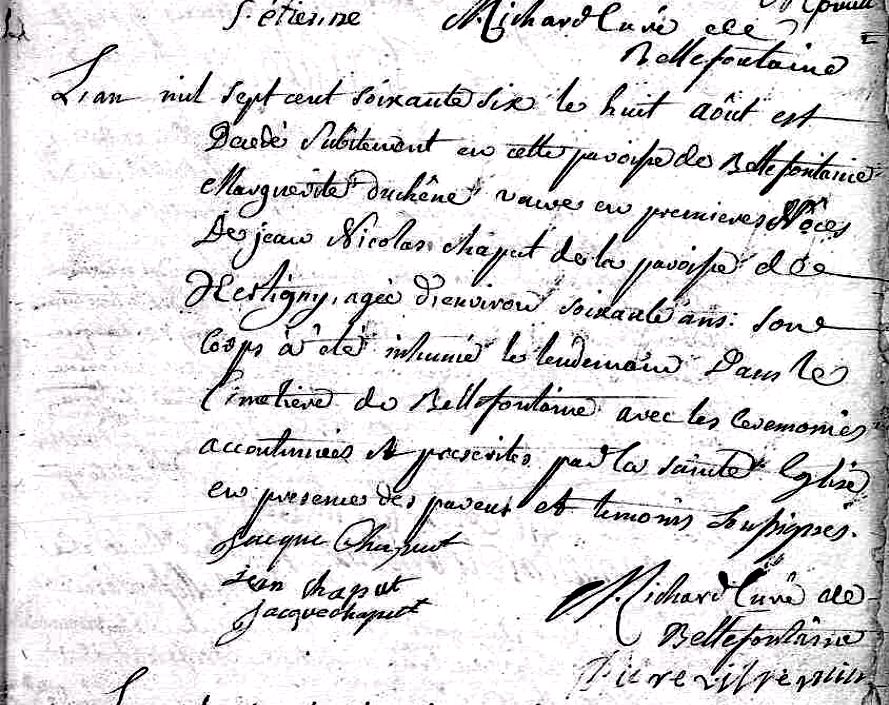 S. étienne M. Richard Curé de
Bellefontaine
L'an mil sept cent soixante six le huit août est
Decedé Subitement en cette paroisse de Bellefontaine
Marguerite duchêne vauve en premieres Nôces
De jean Nicolas chaput de la paroisse de
agée d'environ soixante ans: son
Corps à été inhumé le lendemain Dans le
Cimetiere de Bellefontaine avec les ceremonies
accoutumées et prescrites par la sainte Eglise
en presence des parens et temoins soussignes.
Jacque Chaput
jean chaput
jacque chaput
M. Richard Curé de
Bellefontaine
Pierre